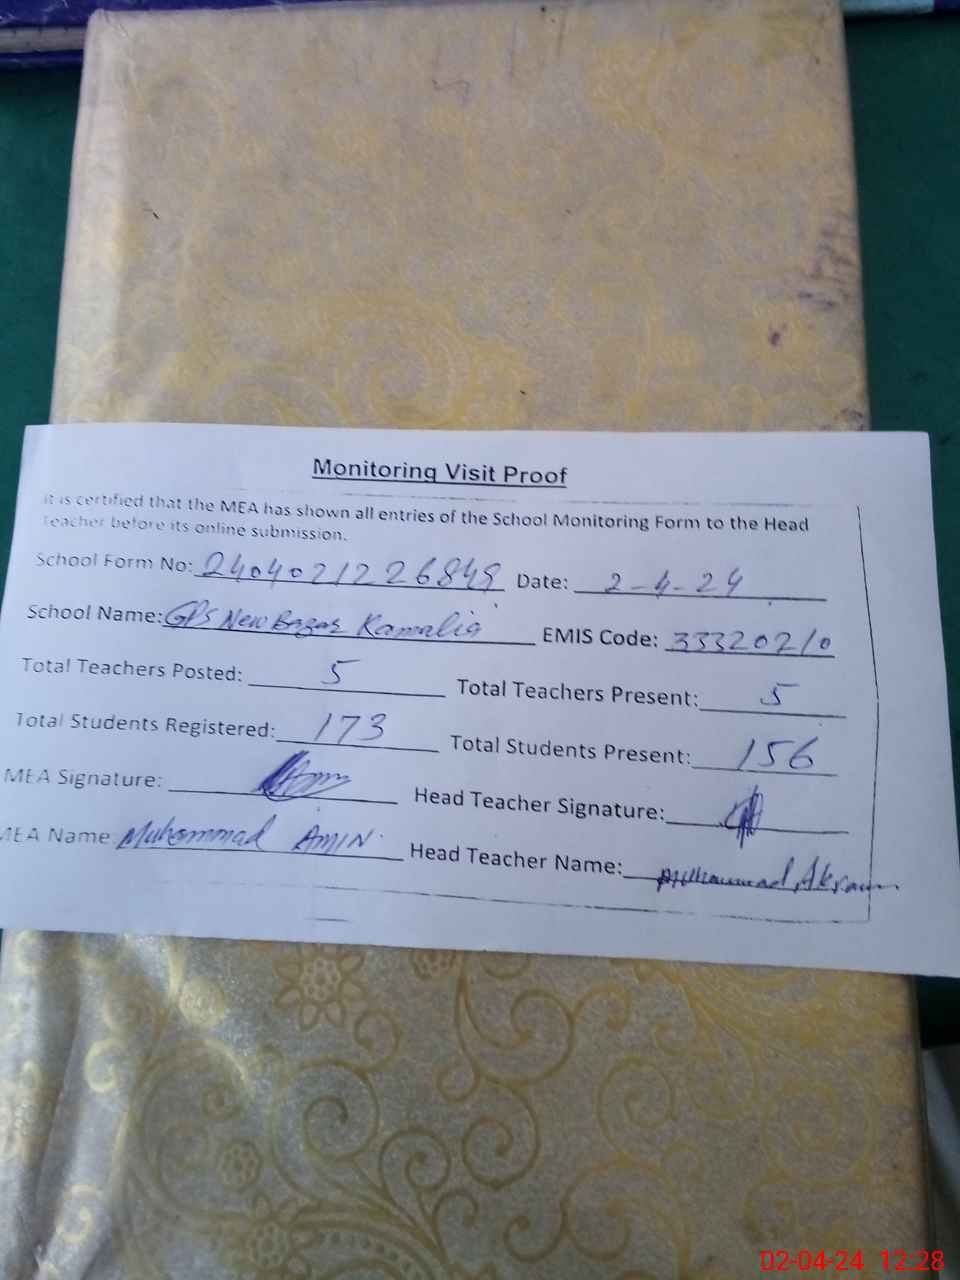 Monitoring Visit Proof
It is certified that the MEA has shown all entries of the School Monitoring Form to the Head
Teacher before its online submission.
School Form No: 2404021226849 Date: 2-4-24
School Name: GPS New Bazar Kamalia EMIS Code: 33320210
Total Teachers Posted: 5 Total Teachers Present: 5
Total Students Registered: 173 Total Students Present: 156
MEA Signature: Head Teacher Signature:
MEA Name Muhammad AMIN Head Teacher Name: Muhammad Akram
02-04-24 12:28